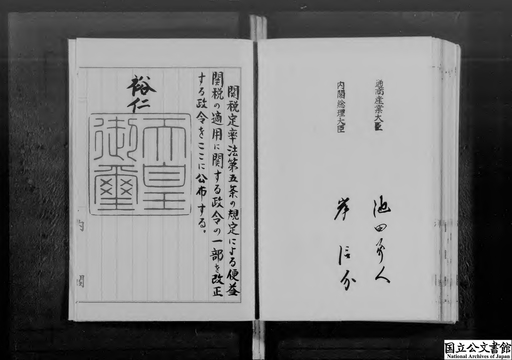 通商産業大臣 池田勇人
内閣総理大臣 岸信介
関税定率法第五条の規定による便益
関税の適用に関する政令の一部を改正
する政令をここに公布する。
裕仁
天皇
御璽
国立公文書館
National Archives of Japan